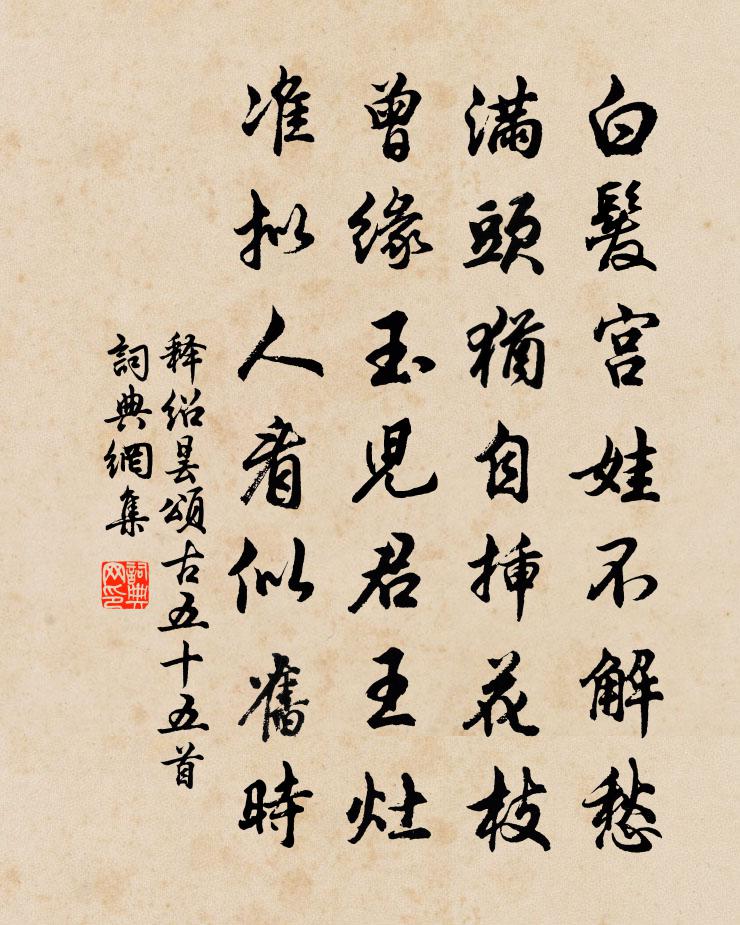 白髮宮娃不解愁
滿頭猶自插花枝
曾緣玉兒君王灶
准拟人看似舊時
释紹昙頌古五十五首
詞典網集
詞典网印